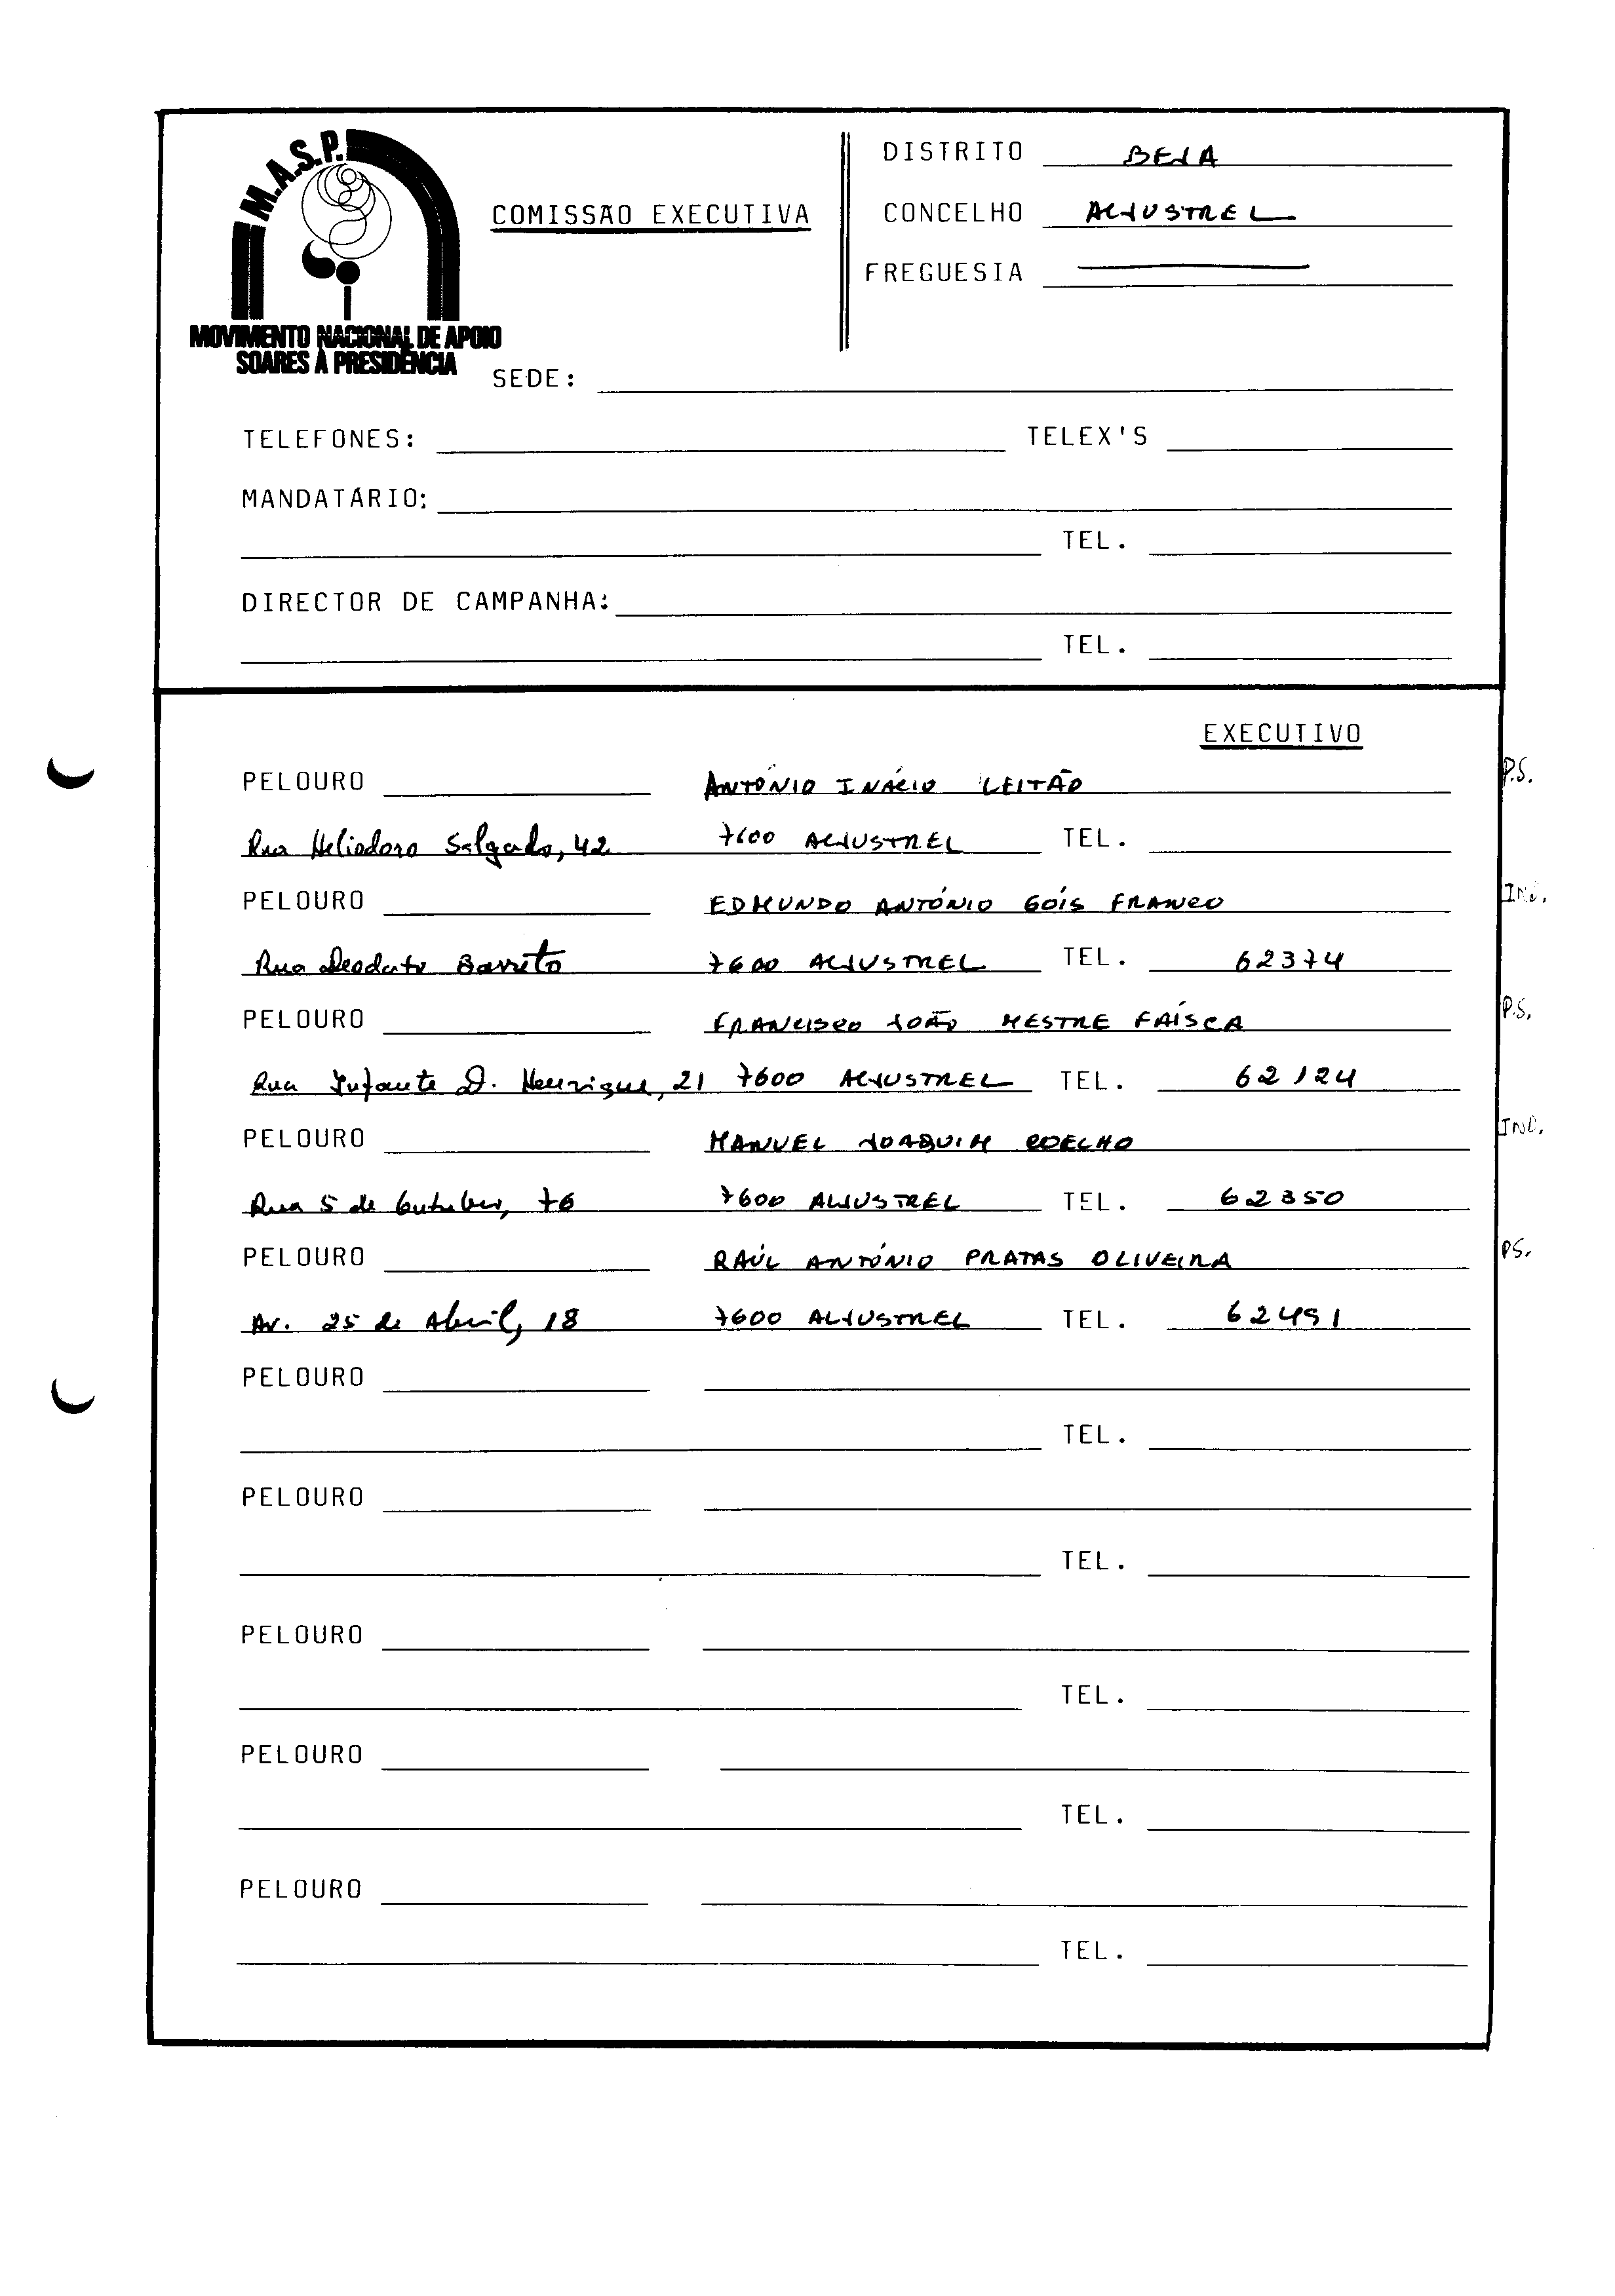 M.A.S.P.
MOVIMENTO NACIONAL DE APOIO
SOARES À PRESIDÊNCIA
COMISSÃO EXECUTIVA
DISTRITO BEJA
CONCELHO ALJUSTREL
FREGUESIA
SEDE:
TELEFONES: TELEX'S
MANDATÁRIO:
TEL.
DIRECTOR DE CAMPANHA:
TEL.
EXECUTIVO
PELOURO ANTÓNIO INÁCIO LEITÃO P.S.
Rua Heliodoro Salgado, 42 7600 ALJUSTREL TEL.
PELOURO EDMUNDO ANTÓNIO GÓIS FRANCO IND.
Rua Deodato Barreto 7600 ALJUSTREL TEL. 62374
PELOURO FRANCISCO JOÃO MESTRE FAÍSCA P.S.
Rua Infante D. Henrique, 21 7600 ALJUSTREL TEL. 62124
PELOURO MANUEL JOAQUIM COELHO IND.
Rua 5 de Outubro, 76 7600 ALJUSTREL TEL. 62350
PELOURO RAÚL ANTÓNIO PRATAS OLIVEIRA PS.
Av. 25 de Abril, 18 7600 ALJUSTREL TEL. 62491
PELOURO
TEL.
PELOURO
TEL.
PELOURO
TEL.
PELOURO
TEL.
PELOURO
TEL.